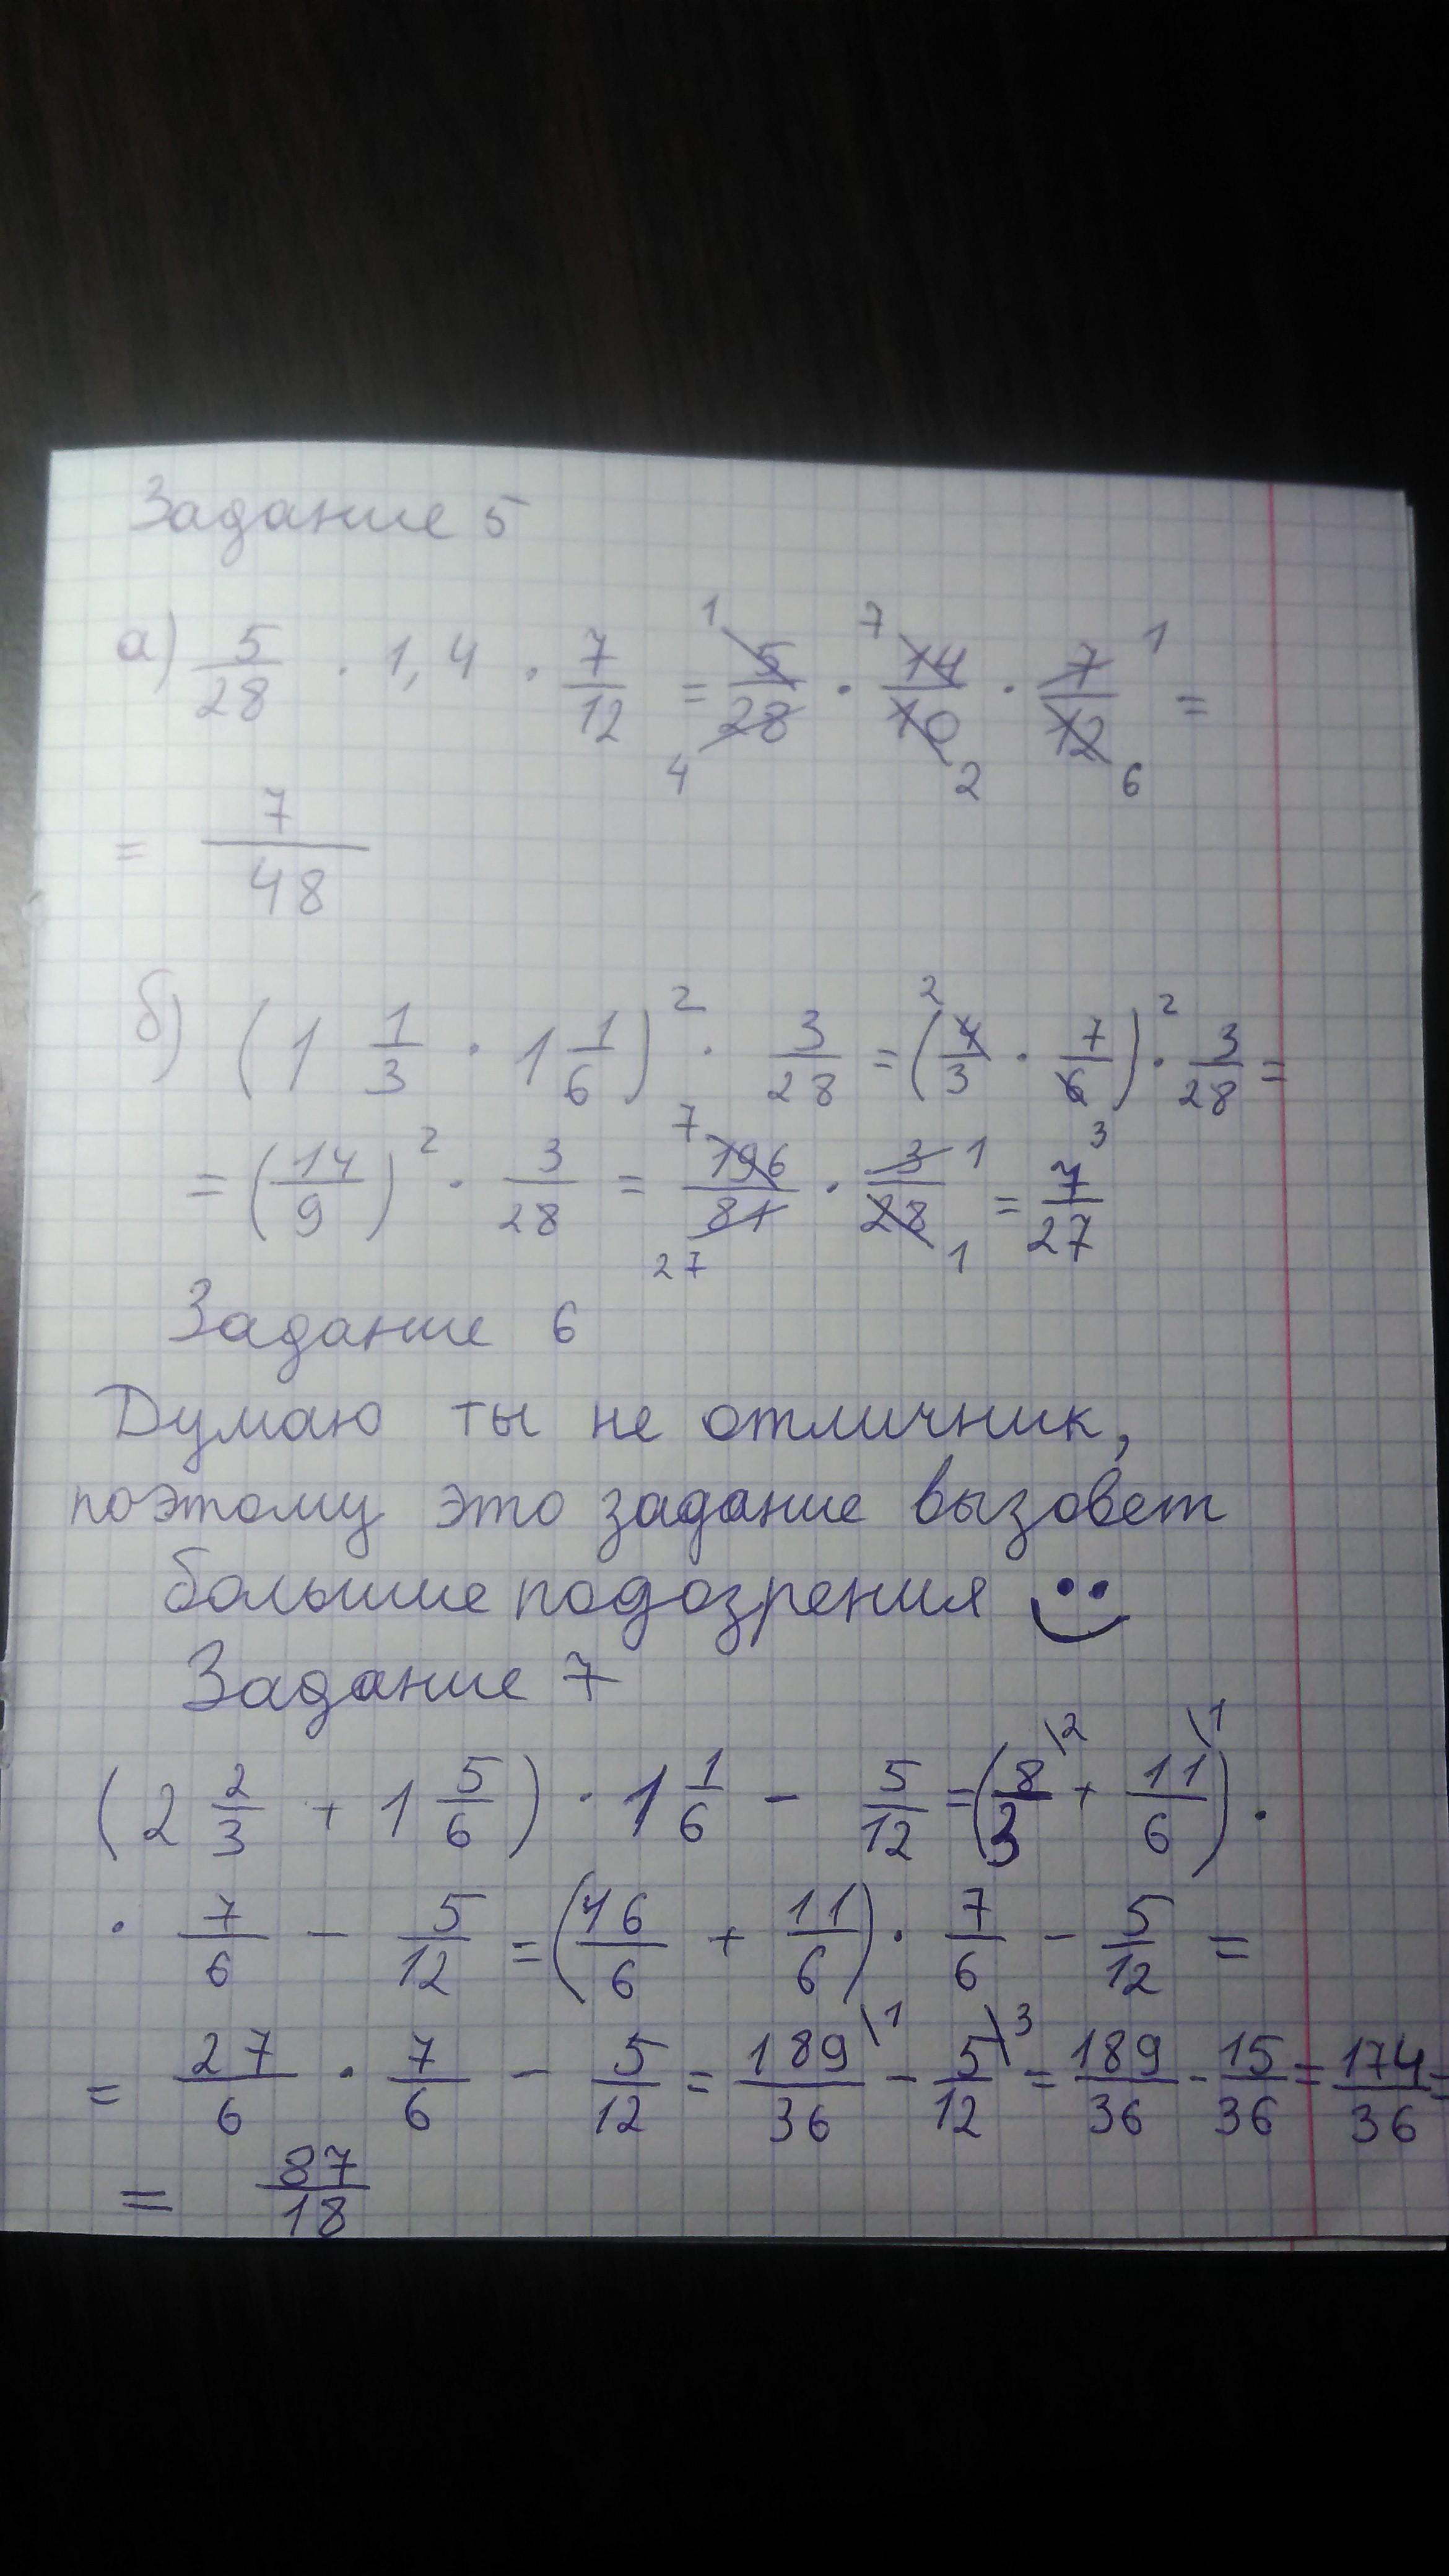 Задание 5
а) 5/28 · 1,4 · 7/12 = 5/28 · 14/10 · 7/12 =
1 7 1
4 2 6
= 7/48
б) (1 1/3 · 1 1/6)² · 3/28 = (4/3 · 7/6)² · 3/28 =
2 3
= (14/9)² · 3/28 = 196/81 · 3/28 = 7/27
7 1
27 1
Задание 6
Думаю ты не отличник,
поэтому это задание вызовет
большие подозрения
Задание 7
(2 2/3 + 1 5/6) · 1 1/6 - 5/12 = (8/3 \2 + 11/6 \1) ·
· 7/6 - 5/12 = (16/6 + 11/6) · 7/6 - 5/12 =
= 27/6 · 7/6 - 5/12 = 189/36 \1 - 5/12 \3 = 189/36 - 15/36 = 174/36 =
= 87/18